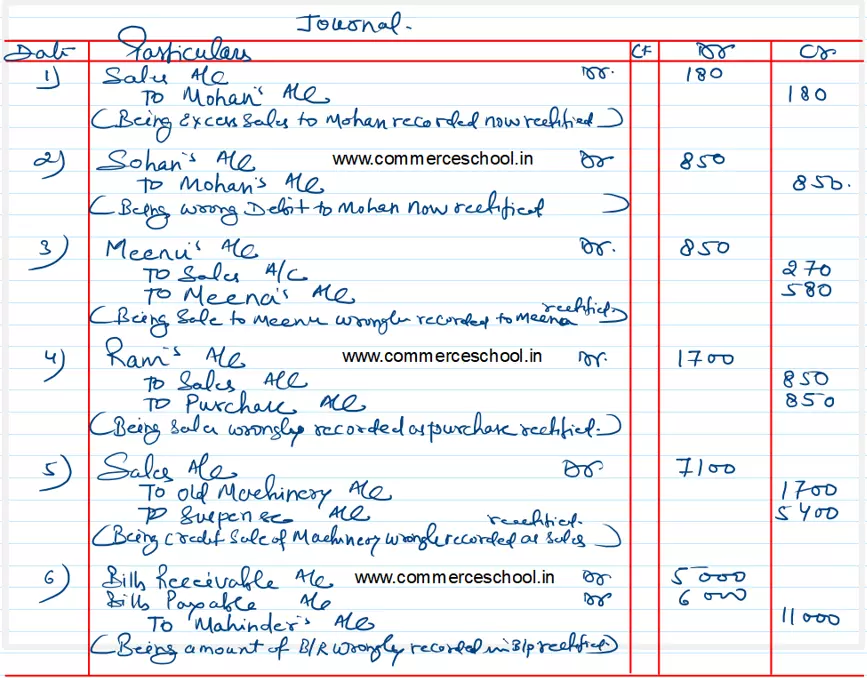 Journal.
Date Particulars LF Dr Cr
1) Sales A/c Dr. 180
To Mohan's A/c 180
(Being Excess Sales to Mohan recorded now rectified)
2) Sohan's A/c www.commerceschool.in Dr 850
To Mohan's A/c 850.
(Being wrong Debit to Mohan now rectified)
3) Meenu's A/c Dr. 850
To Sales A/c 270
To Meena's A/c 580
(Being Sale to Meenu wrongly recorded to Meena rectified.)
4) Ram's A/c www.commerceschool.in Dr. 1700
To Sales A/c 850
To Purchase A/c 850
(Being Sales wrongly recorded as purchase rectified.)
5) Sales A/c Dr 7100
To Old Machinery A/c 1700
To Suspense A/c 5400
(Being credit Sale of Machinery wrongly recorded as Sales rectified.)
6) Bills Receivable A/c www.commerceschool.in Dr 5000
Bills Payable A/c Dr 6000
To Mahinder's A/c 11000
(Being amount of B/R wrongly recorded in B/P rectified)